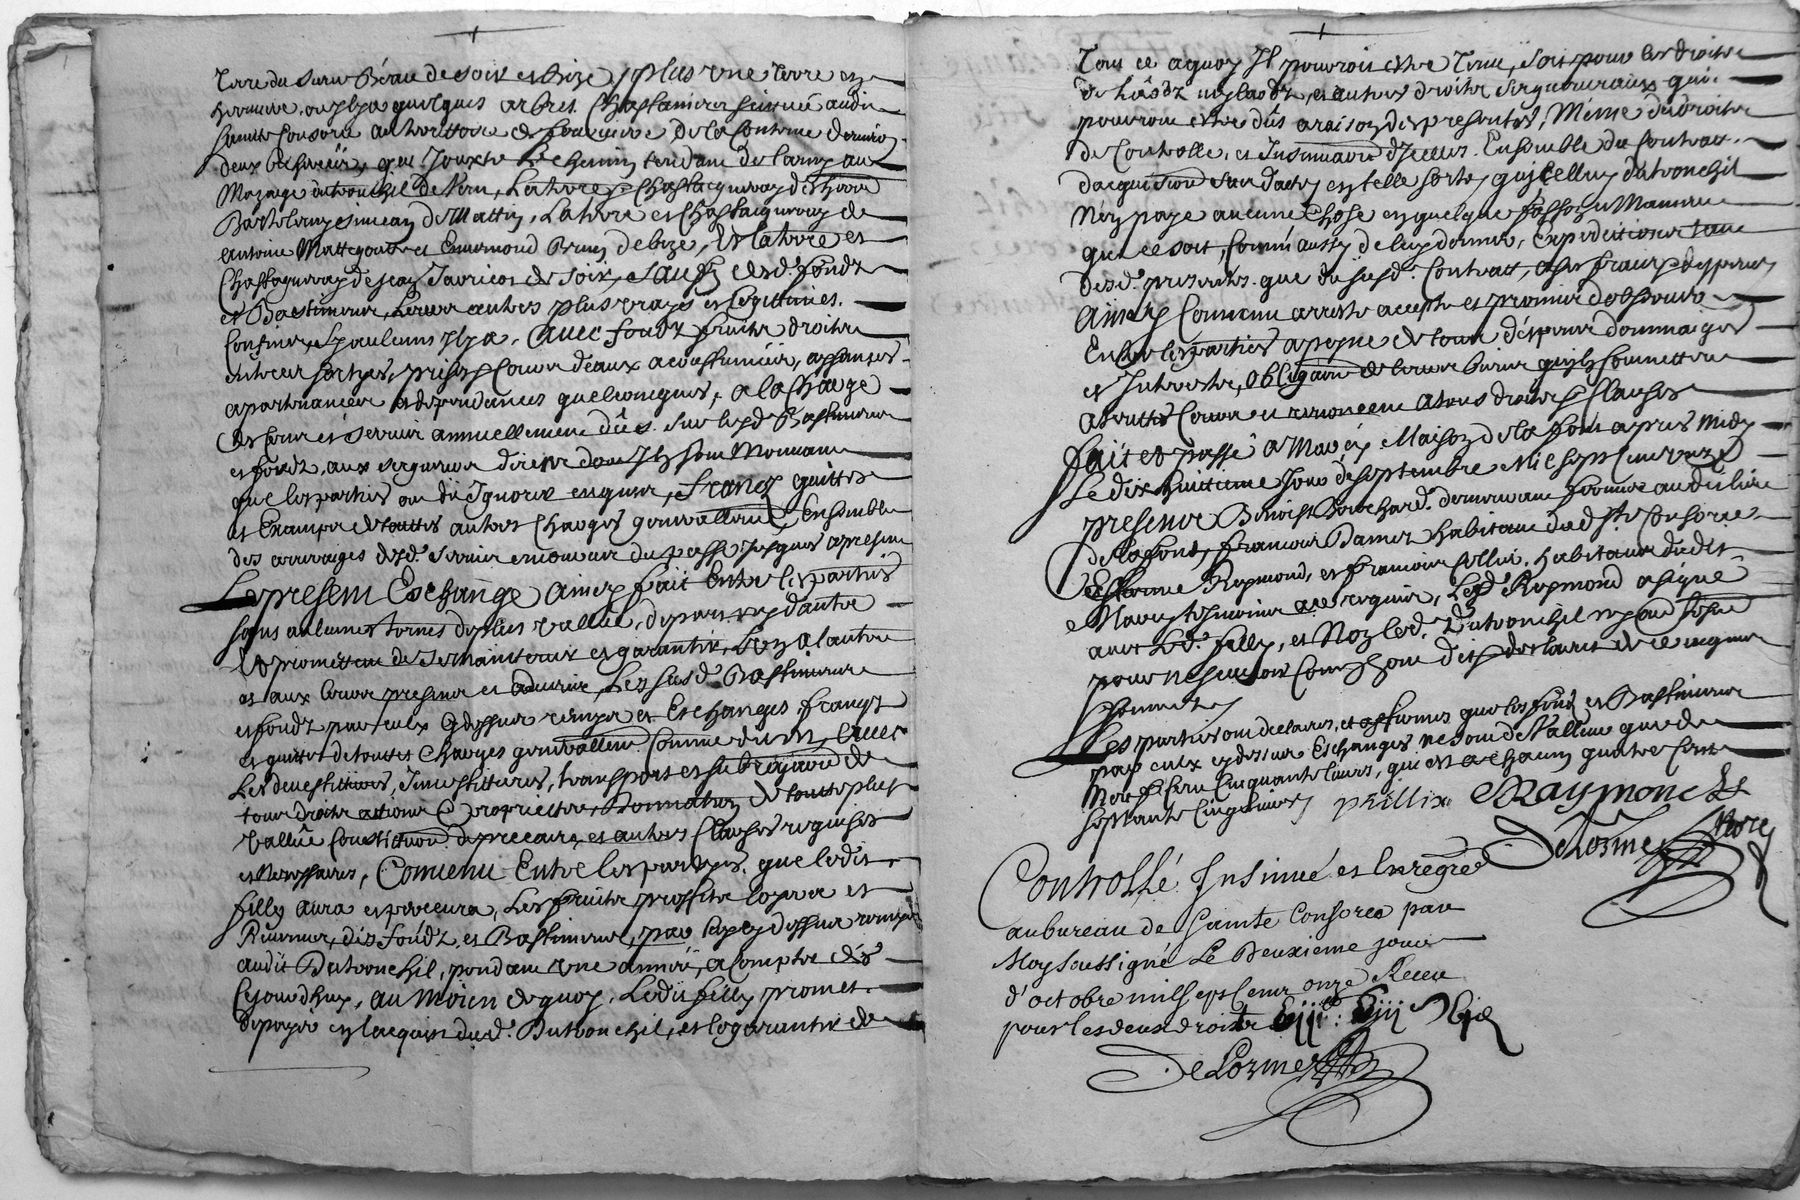 terre du sieur Béraud de soir et bize, plus une terre et
verniere, ou il y a quelques arbres Chastaniers scituée audit
sainte Consorce au territoire de de la Contenue d'environ
deux bicherées, qui Jouxte le chemin tendant de au
Mazage dutronchil de vern, La terre Chastagneray des hoirs
Bartelemy simean de Mattin, La terre et Chastagneray de
antoine et Enemond brun de bize, Et la terre et
Chastagneray de jean de soir, sauf esd. fondz
et Bastiments, Leurs autres plus vrays et Legittimes
Confins, sy aulcuns Il y a, avec fondz fruits droits
entrées sortyes, prises Cours d'eaux acoustumées, aysances
apartenances et dependances quelconques, a la Charge
des Cens et servis annuellement dûes sur lesd. Bastiments
et fondz, aux seigneurs directes dont Ils sont Mouvants
que les parties ont dit Ignorer enquises, francz quittes
et Exempts de touttes autres Charges generallement, Ensemble
des arrerages desd. servis encourus du passé Jusques apresent
Le present Eschange ainsy fait Entre les parties
sans aulcunes tornes de plus vallue, de part ny d'autre
Et promettent de se maintenir et garantir, L'un a l'autre
et aux leurs presents et advenir, Les susd. Bastiments
et fondz par eulx cy dessus remys et Eschanges francqz
et quittes de touttes Charges generallement Comme dit est, avec
Les devestitures, Investitures, transport et subrogation de
tous droits actions Et proprietes, Donnation de toutte plus
vallüe Constitution de precaire, et autres Clauses requises
et Necessaires, Convenu Entre les partyes, que ledit
filly aura et percevra, Les fruits proffits loyers et
Revenus, des fondz et Bastiments, par luy cy dessus remys
audit Dutronchil, pendant une année, a Compter dès
Cejourdhuy, au moien de quoy, Ledit filly promet
de payer en l'acquit dud. Dutronchil, et le garantir de
Tous ce aquoy Il pourroit estre tenu, soit pour les droits
de Laodz Mylaodz, et autres droits seigneuriaux qui
pourroient estre dûs a raison des presentes, Même des droits
de Controlle, et Insinuation d'Jcelles. Ensemble du Contrat
d'acquisition en telle sorte, qu'jcelluy dutronchil
N'en paye aucune Chose en quelque fasson et Maniere
que ce soit, Comm' aussy de luy donner, Expeditions tant
desd. presentes que du susd. Contratt, a ses fraix et despens
Ainsy Convenu arresté accepté et promis d'observer
Entre les parties a peyne de tous despens dommages
et Interestz, obligation de leurs biens qu'ils soumettent
a touttes Cours et renoncent a tous droits et Clauses
fait et passé a Marcy Maison de la font apres midy
Le dix huittieme Jour de septembre Mil sept Cens onze
presents Benoist Bouchard demeurant fermier audit lieu
de la font, francois Damez habitant dud. ste Consorce
Estienne Reymond, et francois , habitans dudit
Marcy tesmoins a ce requis, Led. Reymond a signé
avec Led. filly, et Non led. Dutronchil ny lesd. tesmoins
pour ne scavoir Comm' ont dit et desclaré de ce enquis
et sommés
Les parties ont desclaré, et affirmé que les fondz et Bastiments
par eulx cy dessus Eschanges ne sont de Valleur que de
Neuf Cens Cinquante livres, qui est a chacun quatre Cens
septante Cinq livres phillix Raymond
Delorme No.re
Controllé Insinué et Enregré
au bureau de sainte Consorce par
Moy soussigné Le Deuxieme jour
d'octobre mil sept Cens onze Receu
pour les deux droits
DeLorme